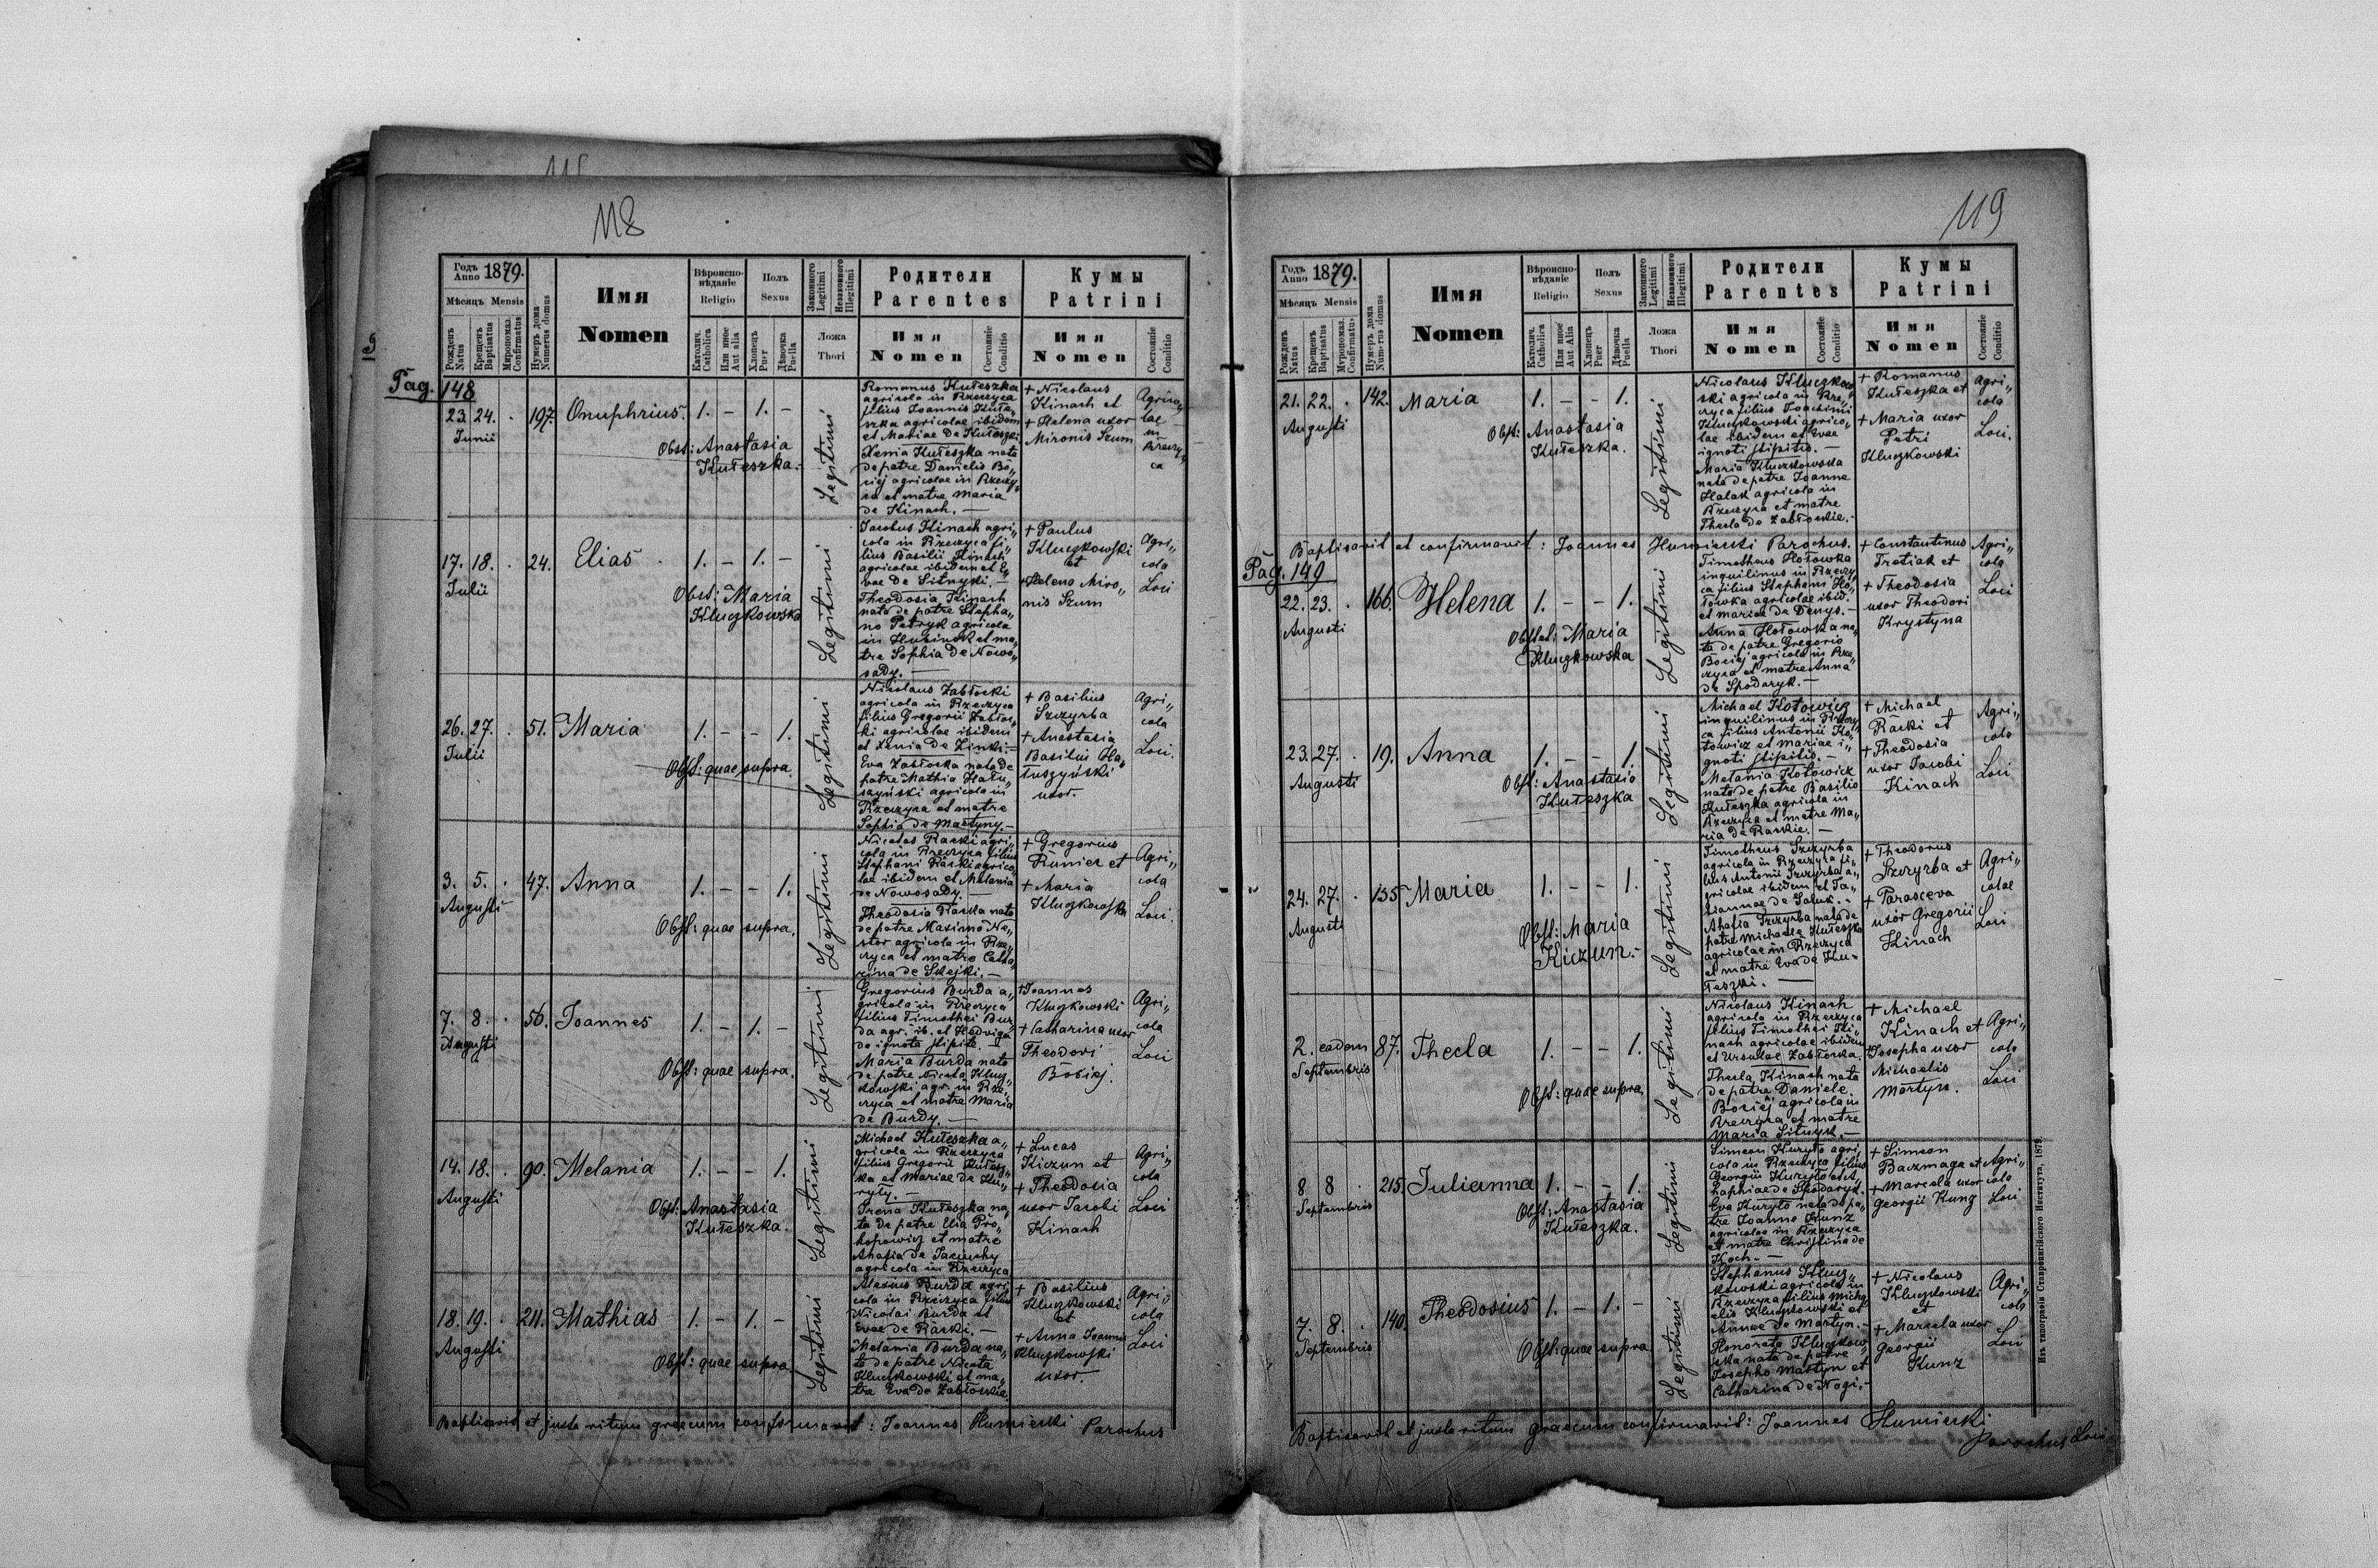 118
Годъ Anno 1879.
Мѣсяцъ Mensis
Рожденъ Natus
Крещенъ Baptisatus
Миропомаз. Confirmatus
Нумеръ дома Numerus domus
Имя
Nomen
Вѣроиспо-
вѣданіе
Religio
Католич. Catholica
Или иное Aut alia
Полъ
Sexus
Хлопецъ Puer
Дѣвочка Puella
Законного Legitimi
Незаконного Illegitimi
Ложа
Thori
Родители
Parentes
Имя
Nomen
Состояніе Conditio
Кумы
Patrini
Имя
Nomen
Состояніе Conditio
Pag. 148
23. 24. . 197. Onuphrius. 1. – 1. –
Junii
Obst: Anastasia
Kułeszka.
Legitimi
Romanus Kułeszka
agricola in Rzeczyca
filius Joannis Kułe„
szka agricolae ibidem
et Mariae de Kułeszki
Xenia Kułeszka nata
de patre Danielis Bo„
ciej agricolae in Rzeczy„
ca et matre Maria
de Kinach. –
+ Nicolaus
Kinach et
+ Helena uxor
Mironis Szum
Agrico„
lae
in
Rzeczy„
ca
17. 18. . 24. Elias 1. – 1. –
Julii
Obst: Maria
Kluczkowska
Legitimi
Jacobus Kinach agri„
cola in Rzeczyca fi„
lius Basilii Kinach
agricolae ibidem et E„
vae de Sitnyki. –
Theodosia Kinach
nata de patre Stepha„
no Petryk agricola
in Hubinek et ma„
tre Sophia de Nowo„
sady. –
+ Paulus
Kluczkowski
et
+Helena Miro„
nis Szum
Agri„
cola
Loci
26. 27. . 51. Maria 1. – – 1.
Julii
Obst: quae supra.
Legitimi
Nicolaus Zabłocki
agricola in Rzeczyca
filius Gregorii Zabłoc„
ki agricolae ibidem
et Xenia de Zinki. –
Eva Zabłocka nata de
patre Mathia Hału„
szyński agricola in
Rzeczyca et matre
Sophia de Martyny. –
+ Basilius
Szczyrba
+ Anastasia
Basilii Ha„
łuszyński
uxor.
Agri„
cola
Loci.
3. 5. . 47. Anna 1. – – 1.
Augusti
Obst: quae supra.
Legitimi
Nicetas Raski agri„
cola in Rzeczyca filius
Stephani Raski agrico„
lae ibidem et Melania
de Nowosady. –
Theodosia Raska nata
de patre Maximo Ne„
stor agricola in Rze„
czyca et matre Catha„
rina de Skejki. –
+ Gregorius
Kunier et
+ Maria
Kluczkowska
Agri„
cola
Loci.
7. 8. . 56. Joannes 1. – 1. –
Augusti
Obst: quae supra.
Legitimi
Gregorius Burda a„
gricola in Rzeczyca
filius Timothei Bur„
da agr. ib. et Hedviga
de ignota stipite. –
Maria Burda nata
de patre Niceta Klucz„
kowski agr. in Rze„
czyca et matre Maria
de Burdy. –
+Joannes
Kluczkowski
+ Catharina uxor
Theodori
Bociej.
Agri„
cola
Loci
14. 18. . 90. Melania 1. – – 1.
Augusti
Obst: Anastasia
Kułeszka.
Legitimi
Michael Kułeszka a„
gricola in Rzeczyca
filius Gregorii Kułesz„
ka et Mariae de Ku„
ryły. –
Irena Kułeszka na„
ta de patre Elia Pro„
kopowicz et matre
Ahafia de Jacuchy
agricola in Rzeczyca
+ Lucas
Kiczun et
+ Theodosia
uxor Jacobi
Kinach
Agri„
cola
Loci
18. 19. . 211. Mathias 1. – 1. –
Augusti
Obst: quae supra
Legitimi
Alexius Burda agri„
cola in Rzeczyca filius
Nicolai Burda et
Evae de Raski. –
Melania Burda na„
ta de patre Niceta
Kluczkowski et ma„
tre Eva de Zabłockie.
+ Basilius
Kluczkowski
et
+ Anna Joannis
Kluczkowski
uxor.
Agri„
cola
Loci
Baptisavit et juxta ritum graecum confirmavit: Joannes Humiecki Parochus
119
Годъ Anno 1879.
Мѣсяцъ Mensis
Рожденъ Natus
Крещенъ Baptisatus
Муропомаз. Confirmatus
Нумеръ дома Numerus domus
Имя
Nomen
Вѣроиспо-
вѣданіе
Religio
Католич. Catholica
Или иное Aut Alia
Полъ
Sexus
Хлопецъ Puer
Дѣвочка Puella
Законного Legitimi
Незаконного Illegitimi
Ложа
Thori
Родители
Parentes
Имя
Nomen
Состояніе Conditio
Кумы
Patrini
Имя
Nomen
Состояніе Conditio
21. 22. . 142. Maria 1. – – 1.
Augusti
Obst: Anastasia
Kułeszka.
Legitimi
Nicolaus Kluczkow„
ski agricola in Rze„
czyca filius Joachimi
Kluczkowski agrico„
lae ibidem et Evae
ignoti stipitis. –
Maria Kluczkowska
nata de patre Joanne
Halak agricola in
Rzeczyca et matre
Thecla de Zabłockie. –
+ Romanus
Kułeszka et
+ Maria uxor
Petri
Kluczkowski
Agri„
cola
Loci.
Baptisavit et confirmavit: Joannes Humiecki Parochus.
Pag. 149
22. 23. . 166. Helena 1. – – 1.
Augusti
Obstet: Maria
Kluczkowska
Legitimi
Timotheus Hołowka
inquilinus in Rzeczy„
ca filius Stephani Ho„
łowka agricolae ibid.
et Mariae de Denys. –
Anna Hołowka na„
ta de patre Gregorio
Bociej agricola in Rze„
czyca et matre Anna
de Spodaryk. –
+ Constantinus
Tretiak et
+ Theodosia
uxor Theodori
Krystyna
Agri„
cola
Loci
23. 27. . 19. Anna 1. – – 1.
Augusti
Obst: Anastasia
Kułeszka
Legitimi
Michael Kotowicz
inquilinus in Rzeczy„
ca filius Antonii Ko„
towicz et Mariae i„
gnoti stipitis. –
Melania Kotowicz
nata de patre Basilio
Kułeszka agricola in
Rzeczyca et matre Ma„
ria de Raskie. –
+ Michael
Raski et
+ Theodosia
uxor Jacobi
Kinach
Agri„
cola
Loci
24. 27. . 135 Maria 1. – – 1.
Augusti
Obst: Maria
Kiczun.
Legitimi
Timotheus Szczyrba
agricola in Rzeczyca fi„
lius Antonii Szczyrba a„
gricolae ibidem et Ta„
tiannae de Saluk. –
Ahafia Szczyrba nata de
patre Michaele Kułeszka
agricolae in Rzeczyca
et matre Eva de Ku„
łeszki. –
+ Theodorus
Szczyrba et
+ Parasceva
uxor Gregorii
Kinach
Agri„
colae
Loci
2. eadem 87. Thecla 1. – – 1.
Septembris
Obst: quae supra.
Legitimi
Nicolaus Kinach
agricola in Rzeczyca
filius Timothei Ki„
nach agricolae ibidem
et Ursulae Zabłocka.
Thecla Kinach nata
de patre Daniele
Bociej agricola in
Rzeczyca et matre
Maria Sitnyk. –
+ Michael
Kinach et
+Josepha uxor
Michaelis
Martyn.
Agri„
cola
Loci
8 8 . 215. Julianna 1. – – 1.
Septembris
Obst: Anastasia
Kułeszka.
Legitimi
Simeon Kuryło agri„
cola in Rzeczyca filius
Georgii Kuryło et A„
haphiae de Spodaryk.
Eva Kuryło nata de pa„
tre Joanne Kunz
agricolae in Rzeczyca
et matre Christina de
Koch. –
+ Simeon
Baczmaga et
+ Marcela uxor
Georgii Kunz
Agri„
cola
Loci
7. 8. . 140. Theodosius 1. – 1. –
Septembris
Obst: quae supra
Legitimi
Stephanus Klucz„
kowski agricola in
Rzeczyca filius Micha„
elis Kluczkowski et
Annae de Martyn. –
Honorata Kluczkow„
ska nata de patre
Josepho Martyn et
Catharina de Nogi. –
+ Nicolaus
Kluczkowski
et
+ Marcela uxor
Georgii
Kunz
Agri„
cola
Loci
Baptisavit et juxta ritum graecum confirmavit: Joannes Humiecki
Parochus Loci
Изъ типографіи Ставропигійского Института, 1879.